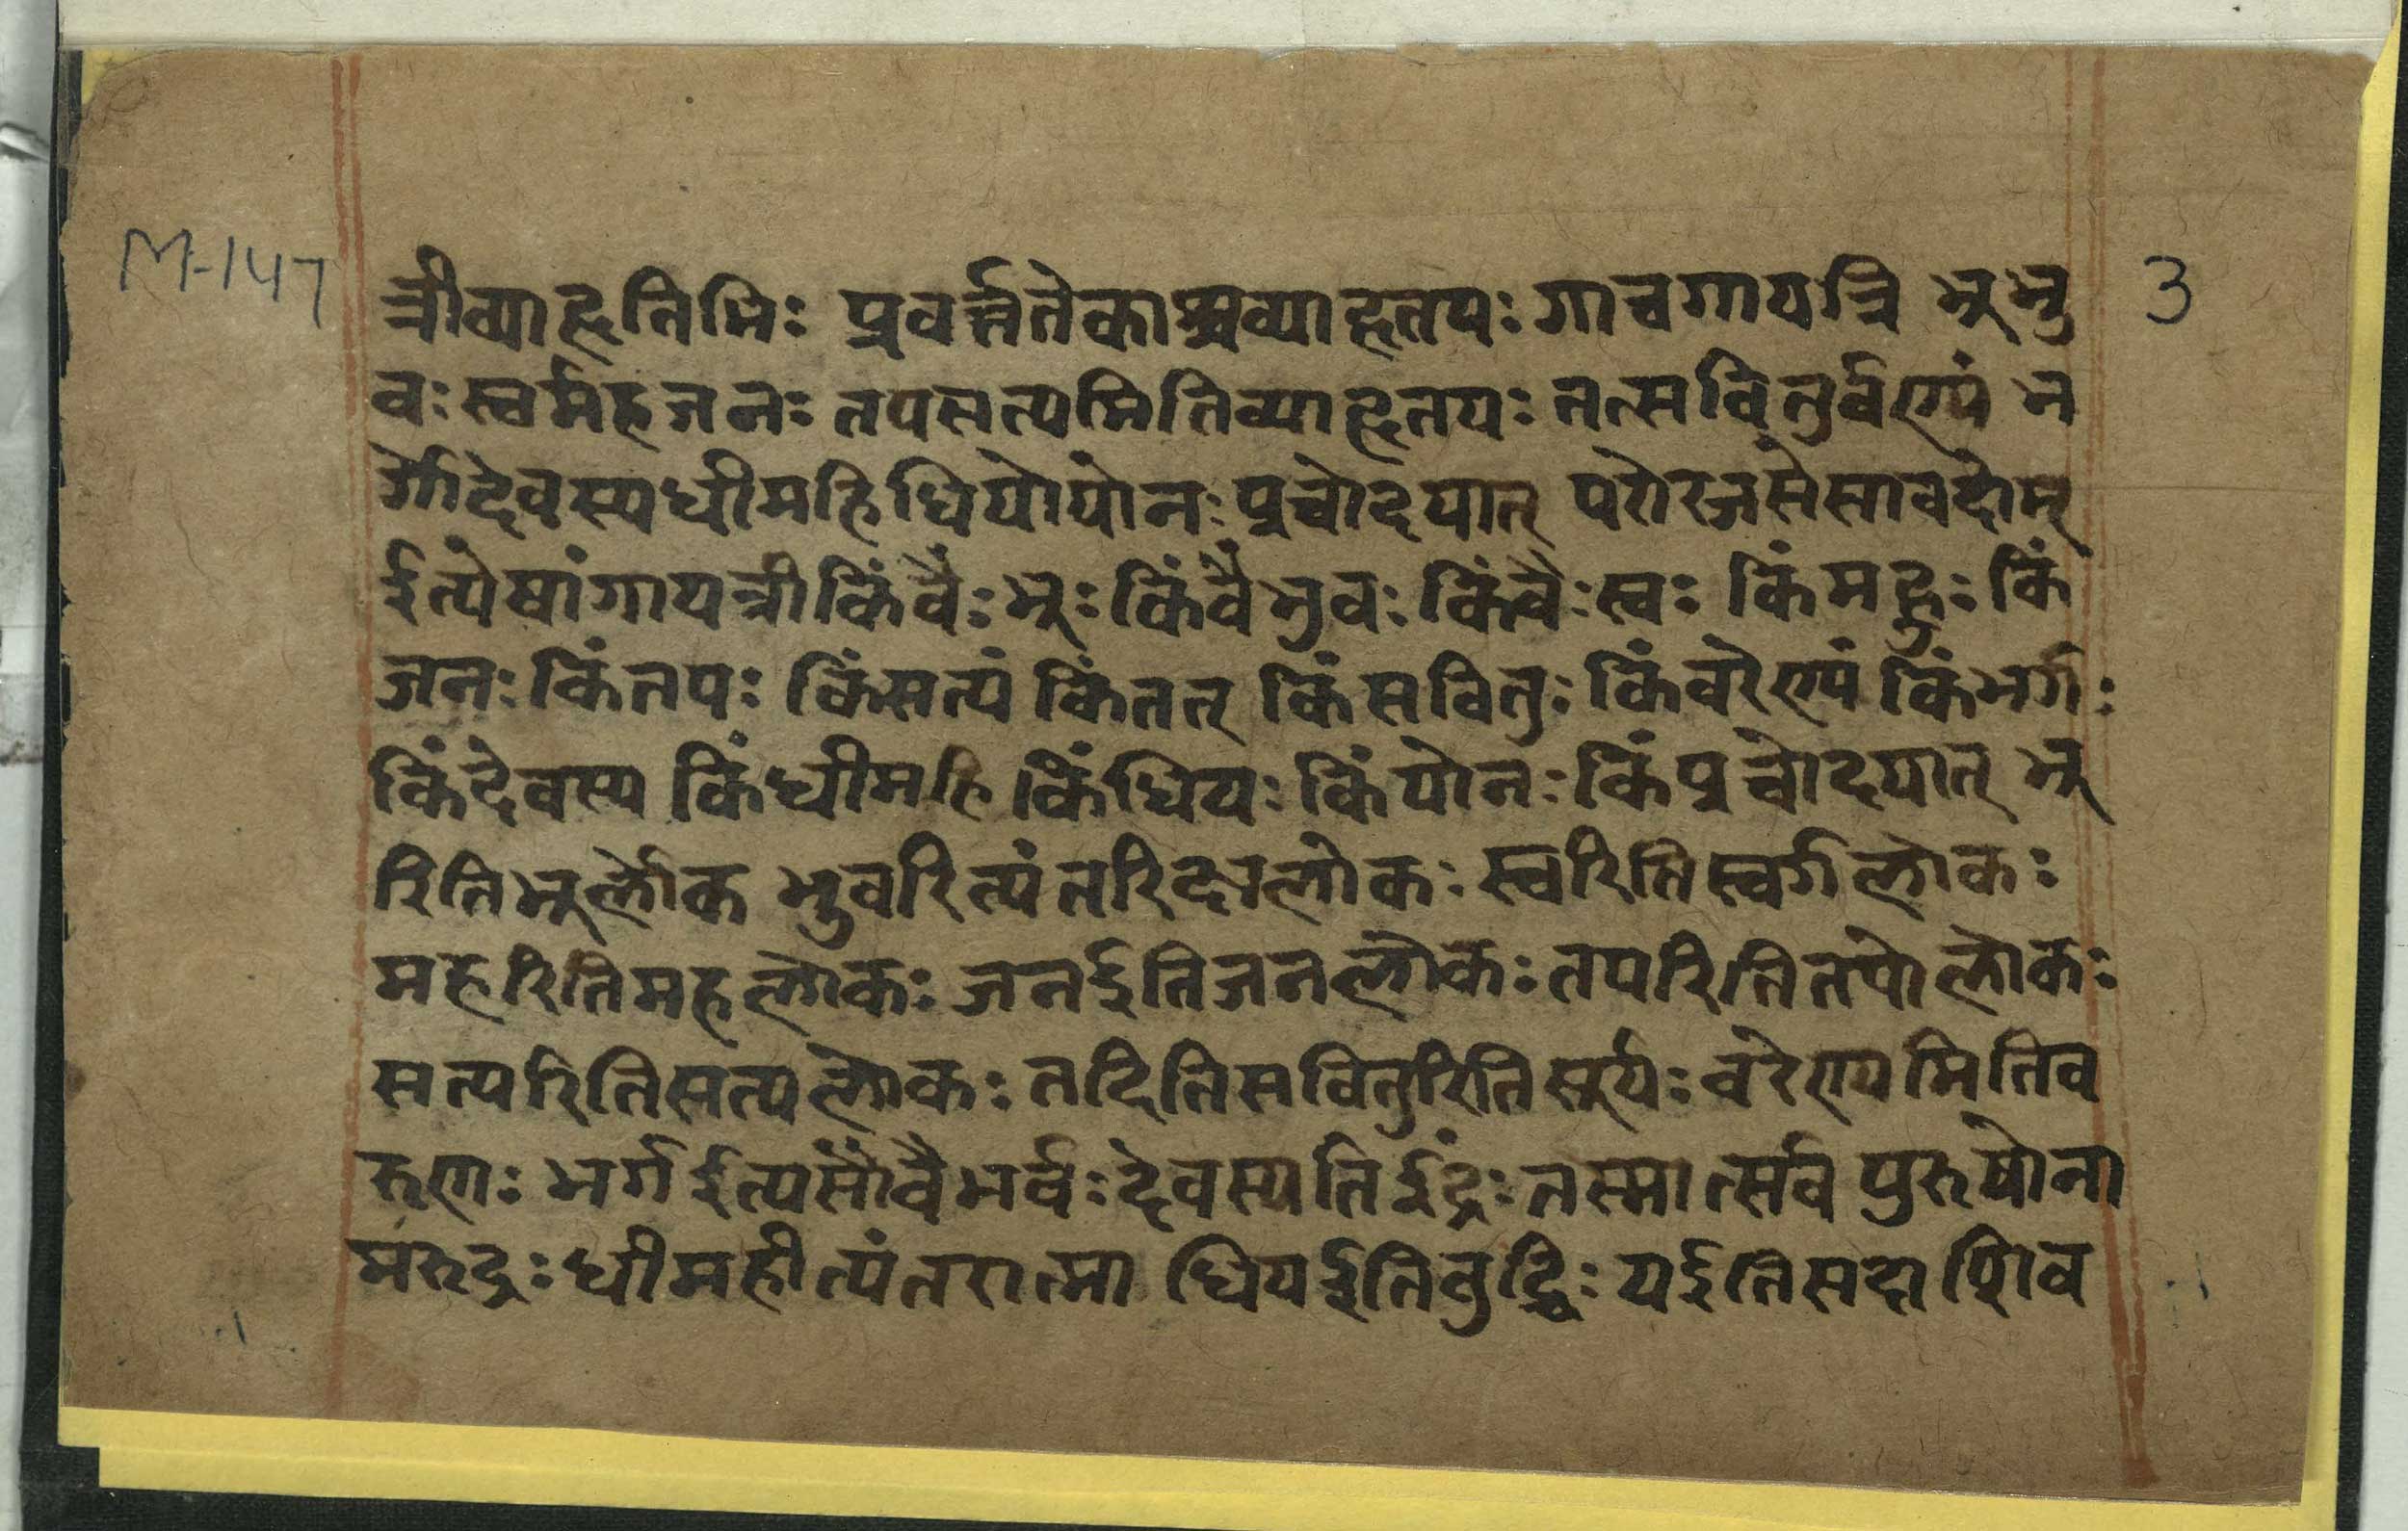 M-147
3
त्रीव्याहृतिभिः प्रवर्त्ततेकाश्चव्याहृतयः गाचगायत्रि भूभु
वः स्वर्महजनः तपसत्यमितिव्याहृतयः तत्सवितुर्वण्यं भ
र्गोदेवस्यधीमहिधियोयोनः प्रचोदयात् परोरजसेसावदोम्
ईत्येषांगायत्रीकिंवैः भूः किंवैभुवः किंवैः स्वः किंमहुः किं
जनः किंतपः किंसत्यं किंतत् किंसवितुः किंवरेण्यं किंभर्गः
किंदेवस्य किंधीमहि किंधियः किंयोनः किंप्रचोदयात् भू
रितिभूर्लोक भुवरित्यंतरिक्षलोकः स्वरितिस्वर्गलोकः
महरितिमहलोकः जनईतिजनलोकः तपरितितपोलोकः
सत्यरितिसत्यलोकः तदितिसवितुरितिसूर्यः वरेण्यमितिव
रूणः भर्गईत्यसौवैभर्वः देवस्यतिईंद्रः तस्मात्सर्वपुरूषोना
मरुद्रः धीमहीत्यंतरात्मा धियईतिबुद्धिः यईतिसदाशिव